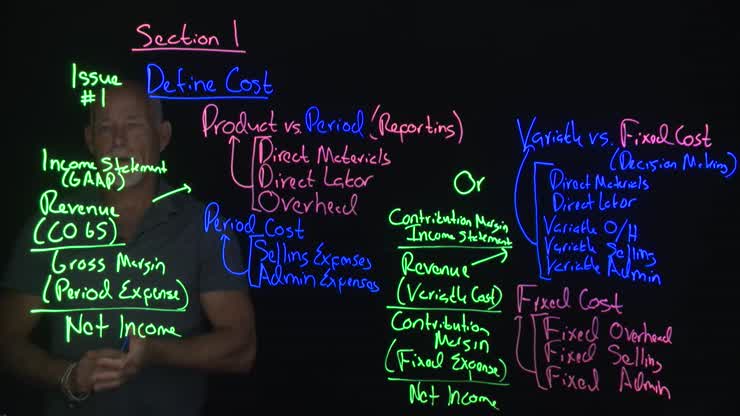 Section 1
Issue
#1
Define Cost
Product vs. Period (Reporting)
Direct Materials
Direct Labor
Overhead
Period Cost
Selling Expenses
Admin Expenses
Income Statement
(GAAP)
Revenue
(COGS)
Gross Margin
(Period Expense)
Net Income
Or
Contribution Margin
Income Statement
Revenue
(Variable Cost)
Contribution
Margin
(Fixed Expense)
Net Income
Variable vs. Fixed Cost
(Decision Making)
Direct Materials
Direct Labor
Variable O/H
Variable Selling
Variable Admin
Fixed Cost
Fixed Overhead
Fixed Selling
Fixed Admin